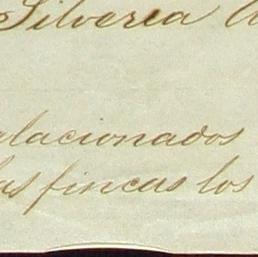 Silverea
relacionados
las fincas los